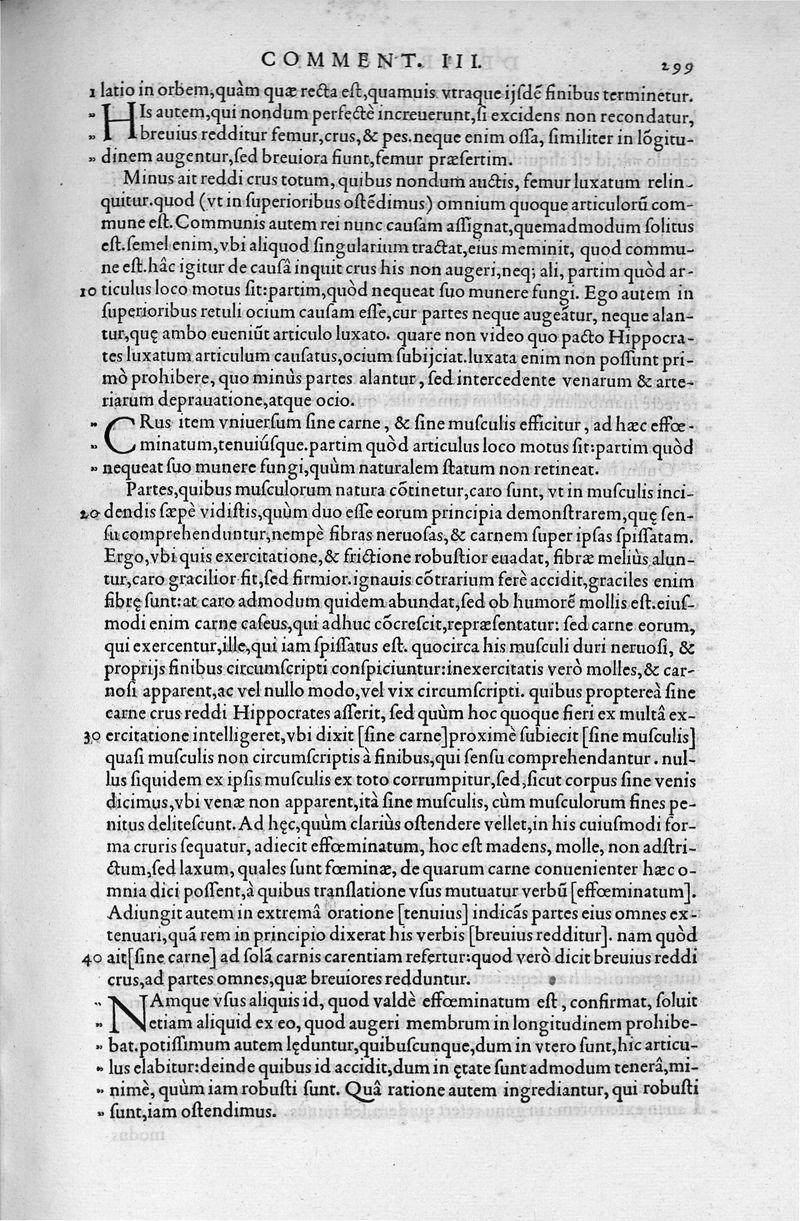 COMMENT. III. 299
1 latio in orbem,quàm quæ recta est,quamuis vtraque ijsdē finibus terminetur.
„ HIs autem,qui nondum perfectè increuerunt,si excidens non recondatur,
„ breuius redditur femur,crus,& pes.neque enim ossa, similiter in lōgitu-
„ dinem augentur,sed breuiora fiunt,femur præsertim.
Minus ait reddi crus totum, quibus nondum auctis, femur luxatum relin-
quitur.quod (vt in superioribus ostēdimus) omnium quoque articulorū com-
mune est. Communis autem rei nunc causam assignat,quemadmodum solitus
est.semel enim,vbi aliquod singularium tractat,eius meminit, quod commu-
ne est.hâc igitur de causâ inquit crus his non augeri,neq; ali, partim quòd ar-
10 ticulus loco motus sit:partim,quòd nequeat suo munere fungi. Ego autem in
superioribus retuli ocium causam esse,cur partes neque augeātur, neque alan-
tur,quę ambo eueniūt articulo luxato. quare non video quo pacto Hippocra-
tes luxatum articulum causatus,ocium subijciat.luxata enim non possunt pri-
mò prohibere, quo minùs partes alantur, sed intercedente venarum & arte-
riarum deprauatione,atque ocio.
„ CRus item vniuersum sine carne, & sine musculis efficitur, ad hæc effœ-
„ minatum,tenuiúsque.partim quòd articulus loco motus sit:partim quòd
„ nequeat suo munere fungi,quùm naturalem statum non retineat.
Partes,quibus musculorum natura cōtinetur,caro sunt, vt in musculis inci-
20 dendis sæpè vidistis,quùm duo esse eorum principia demonstrarem,quę sen-
su comprehenduntur,nempè fibras neruosas,& carnem super ipsas spissatam.
Ergo,vbi quis exercitatione,& frictione robustior euadat, fibræ meliùs alun-
tur,caro gracilior fit,sed firmior.ignauis cōtrarium ferè accidit,graciles enim
fibrę sunt:at caro admodum quidem abundat,sed ob humorē mollis est.eius-
modi enim carne caseus,qui adhuc cōcrescit,repræsentatur: sed carne eorum,
qui exercentur,ille,qui iam spissatus est. quocirca his musculi duri neruosi, &
proprijs finibus circumscripti conspiciuntur:inexercitatis verò molles,& car-
nosi apparent,ac vel nullo modo,vel vix circumscripti. quibus propterea̓ sine
carne crus reddi Hippocrates asserit, sed quùm hoc quoque fieri ex multâ ex-
30 ercitatione intelligeret,vbi dixit [sine carne]proximè subiecit [sine musculis]
quasi musculis non circumscriptis à finibus,qui sensu comprehendantur. nul-
lus siquidem ex ipsis musculis ex toto corrumpitur,sed,sicut corpus sine venis
dicimus,vbi venæ non apparent,ità sine musculis, cùm musculorum fines pe-
nitus delitescunt. Ad hęc,quùm clariùs ostendere vellet,in his cuiusmodi for-
ma cruris sequatur, adiecit effœminatum, hoc est madens, molle, non adstri-
ctum,sed laxum, quales sunt fœminæ, de quarum carne conuenienter hæc o-
mnia dici possent,à quibus translatione vsus mutuatur verbū [effœminatum].
Adiungit autem in extremâ oratione [tenuius] indicās partes eius omnes ex-
tenuari,quā rem in principio dixerat his verbis [breuius redditur]. nam quòd
40 ait[sine carne] ad solā carnis carentiam refertur:quod verò dicit breuius reddi
crus,ad partes omnes,quæ breuiores redduntur.
„ NAmque vsus aliquis id, quod valdè effœminatum est, confirmat, soluit
„ etiam aliquid ex eo, quod augeri membrum in longitudinem prohibe-
„ bat.potissimum autem lęduntur,quibuscunque,dum in vtero sunt,hic articu-
„ lus elabitur:deinde quibus id accidit,dum in ętate sunt admodum tenerâ,mi-
„ nimè, quùm iam robusti sunt. Quâ ratione autem ingrediantur, qui robusti
„ sunt,iam ostendimus.